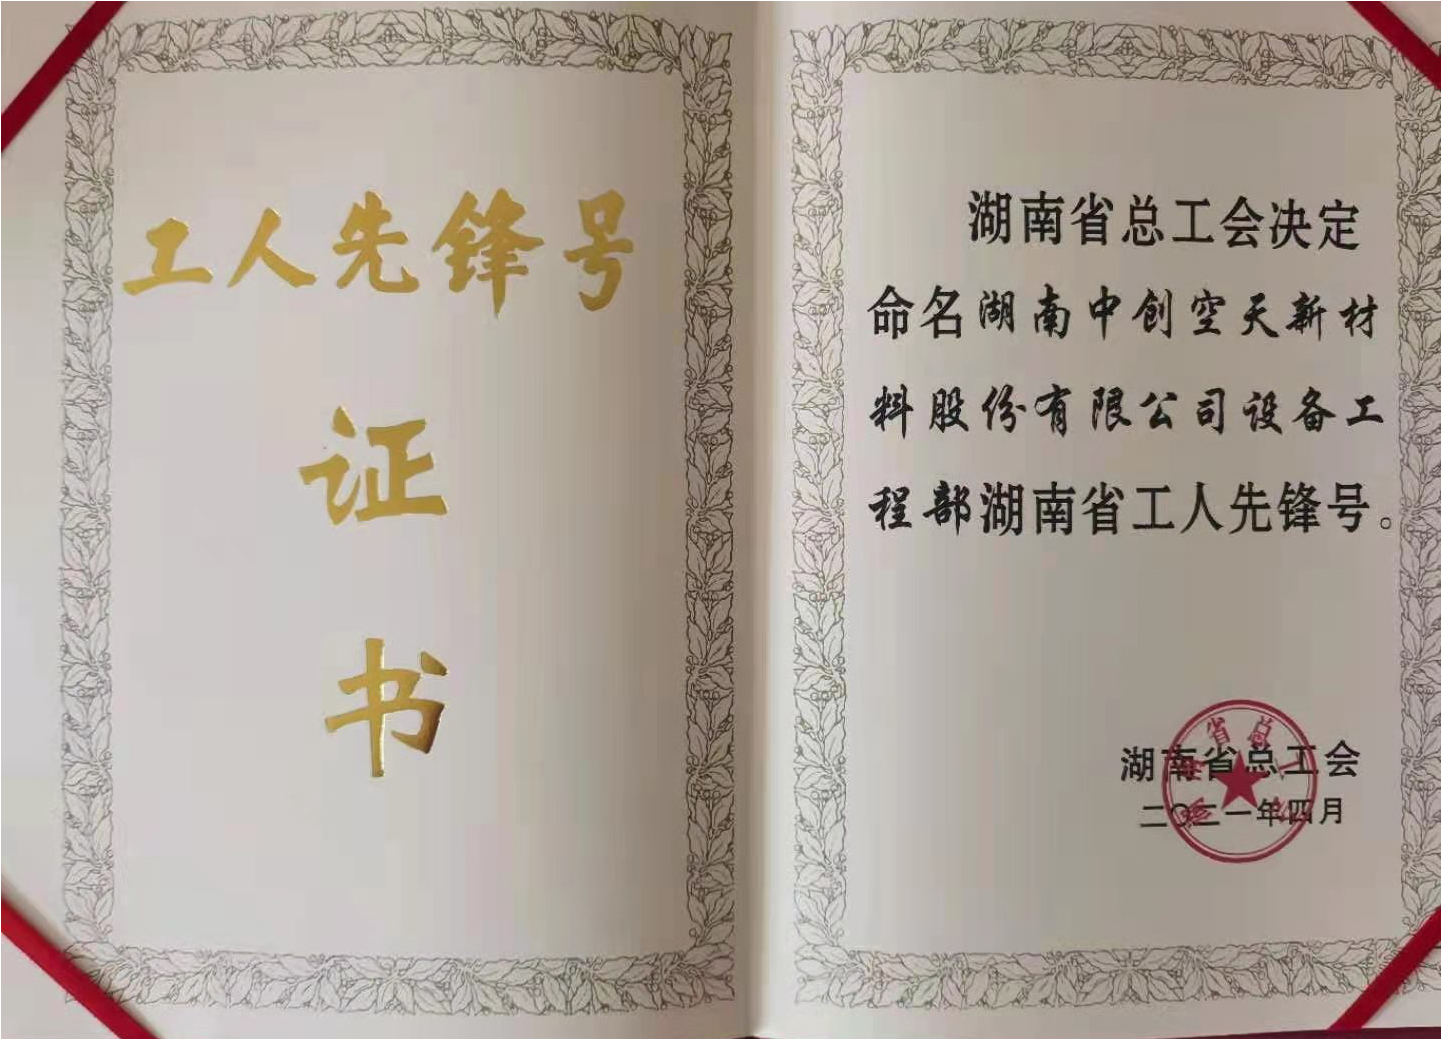 工人先锋号
证
书
湖南省总工会决定
命名湖南中创空天新材
料股份有限公司设备工
程部湖南省工人先锋号。
湖南省总工会
二〇二一年四月
湖南省总工会